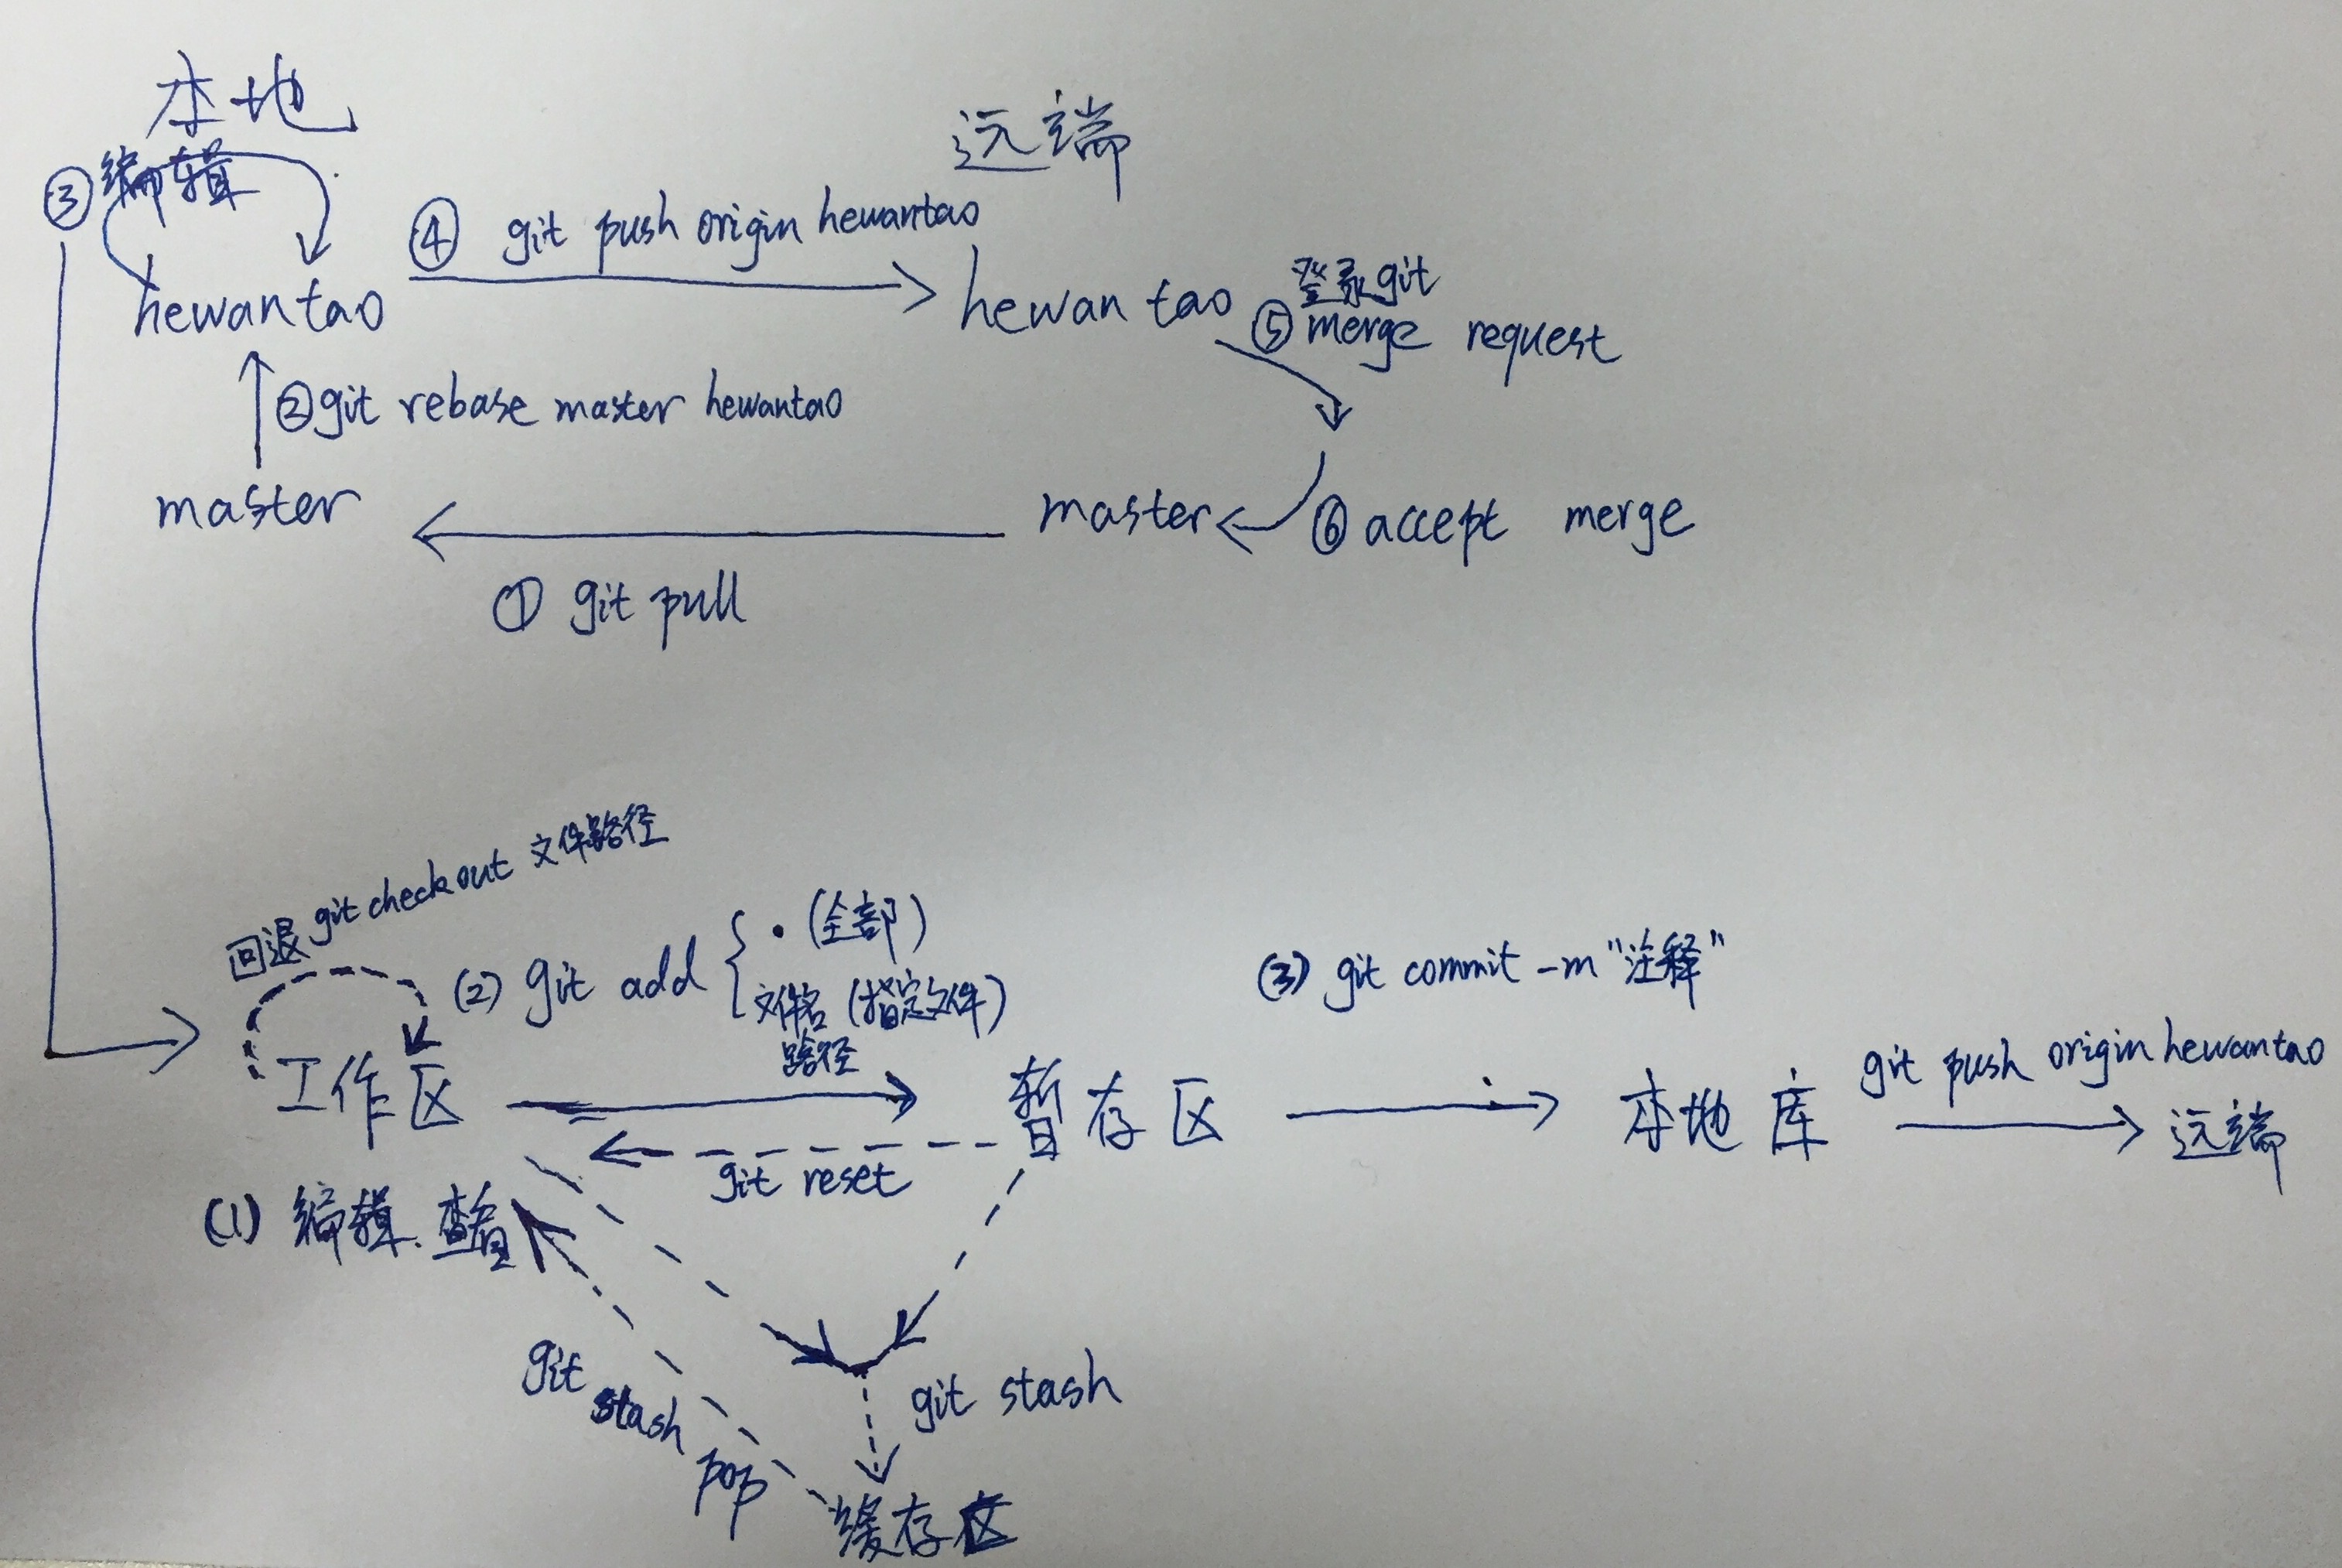 本地
远端
③编辑
④ git push origin hewantao
hewantao
hewantao
登录git
⑤merge request
②git rebase master hewantao
master
master
⑥accept merge
① git pull
回退 git checkout 文件路径
(2) git add { . (全部)
文件名 (指定文件)
路径
(3) git commit -m "注释"
工作区
暂存区
本地库
git push origin hewantao
远端
git reset
(1) 编辑.查看
git stash pop
git stash
缓存区